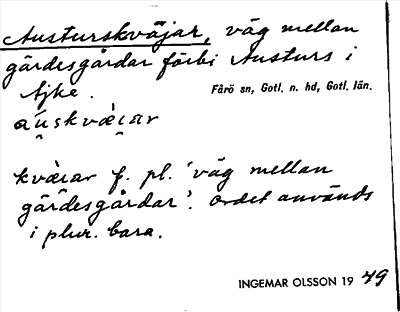 Austurskväjar, väg mellan
gärdesgårdar förbi Austurs i
Ajke.
Fårö sn, Gotl. n. hd, Gotl. län.
kvàiar f. pl. 'väg mellan
gärdesgårdar'. Ordet används
i plur. bara.
INGEMAR OLSSON 19 49